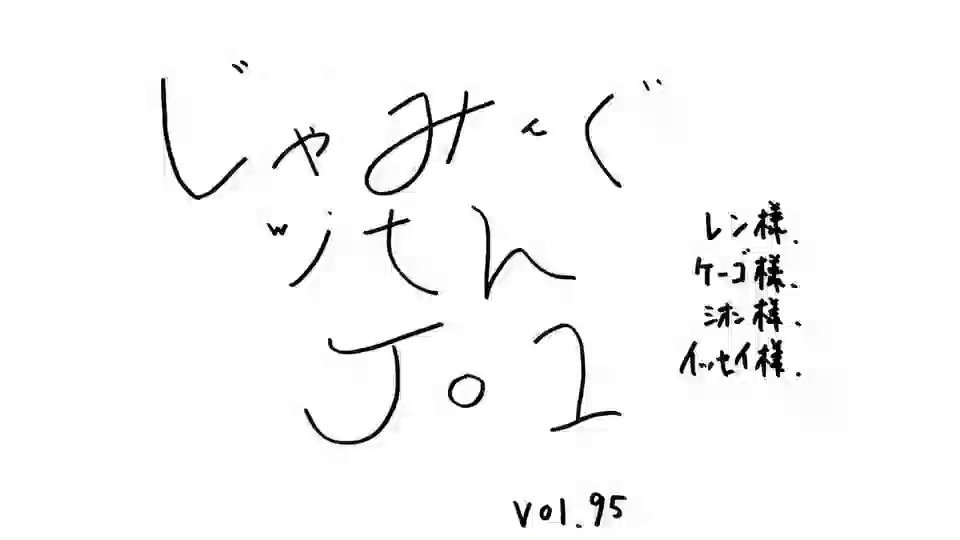 じゃみんぐ
with
JO1
レン様.
ケーゴ様.
シオン様.
イッセイ様.
vol.95